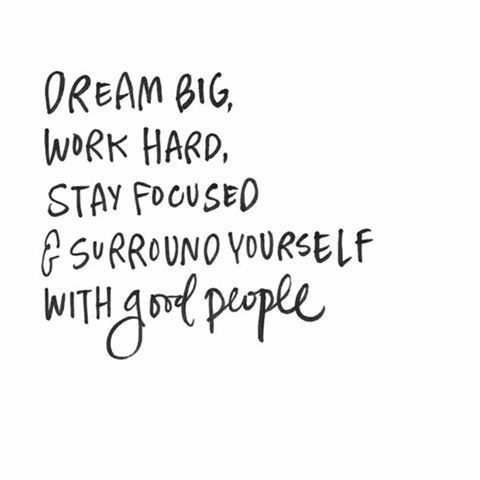 DREAM BIG,
WORK HARD,
STAY FOCUSED
& SURROUND YOURSELF
WITH good people